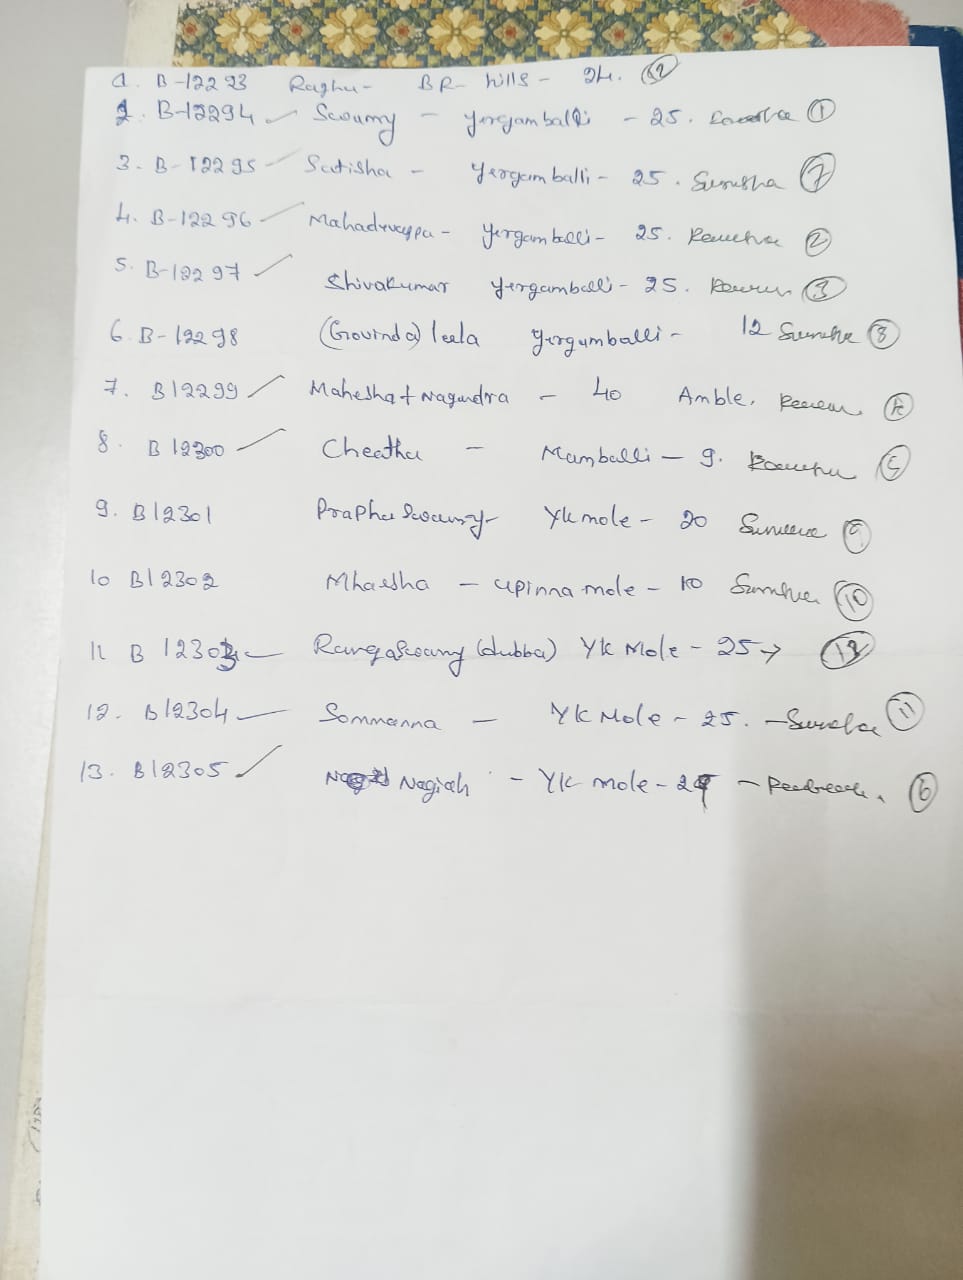 1. B-12293 Raghu - BR- hills - 24. (12)
2. B-12294 Swamy - yergamballi - 25. (1)
3. B-12295 Satisha - Yergamballi - 25. Suresha (7)
4. B-12296 Mahadevappa - yergamballi - 25. (2)
5. B-12297 Shivakumar yergamballi - 25. (3)
6. B-12298 (Govinda) leela yergumballi - 12 (8)
7. B12299 Mahesha + Nagendra - 40 Amble.
8. B12300 - Mamballi - 9. (5)
9. B12301 PraphuSwamy YK mole - 20 (9)
10 B12302 Mhaesha - upinna mole - 10 (10)
11 B 12303 RangaSwamy (dubba) YK Mole - 25 →
12. B12304 Sommanna - YK Mole - 25. - (11)
13. B12305 Nagiah - YK mole - (6)